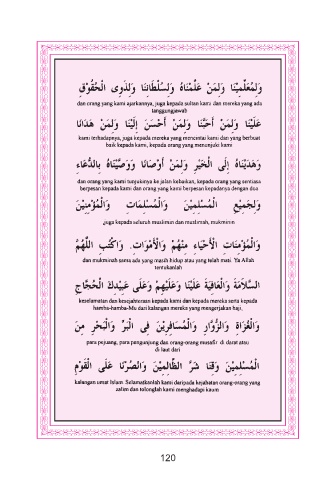 وَلِمُعَلِّمِيْنَا وَلِمَنْ عَلَّمْنَاهُ وَلِسُلْطَانِنَا وَلِذَوِى الْحُقُوْقِ
dan orang yang kami ajarkannya, juga kepada sultan kami dan mereka yang ada
tanggungjawab
عَلَيْنَا وَلِمَنْ أَحَبَّنَا وَلِمَنْ أَحْسَنَ إِلَيْنَا وَلِمَنْ هَدَانَا
kami terhadapnya, juga kepada mereka yang mencintai kami dan yang berbuat
baik kepada kami, kepada orang yang menunjuki kami
وَهَدَيْنَاهُ إِلَى الْخَيْرِ وَلِمَنْ أَوْصَانَا وَوَصَّيْنَاهُ بِالدُّعَاءِ
dan orang yang kami tunjukinya ke jalan kebaikan, kepada orang yang sentiasa
berpesan kepada kami dan orang yang kami berpesan kepadanya dengan doa
وَلِجَمِيْعِ الْمُسْلِمِيْنَ وَالْمُسْلِمَاتِ وَالْمُؤْمِنِيْنَ
,juga kepada seluruh muslimin dan muslimah, mukminin
وَالْمُؤْمِنَاتِ الْأَحْيَاءِ مِنْهُمْ وَالْأَمْوَاتِ. وَاكْتُبِ اللَّهُمَّ
dan mukminah sama ada yang masih hidup atau yang telah mati. Ya Allah
tentukanlah
السَّلَامَةَ وَالْعَافِيَةَ عَلَيْنَا وَعَلَيْهِمْ وَعَلَى عَبِيْدِكَ الْحُجَّاجِ
keselamatan dan kesejahteraan kepada kami dan kepada mereka serta kepada
hamba-hamba-Mu dari kalangan mereka yang mengerjakan haji,
وَالْغُزَاةِ وَالزُّوَّارِ وَالْمُسَافِرِيْنَ فِى الْبَرِّ وَالْبَحْرِ مِنَ
para pejuang, para pengunjung dan orang-orang musafir di darat atau
di laut dari
الْمُسْلِمِيْنَ وَقِنَا شَرَّ الظَّالِمِيْنَ وَانْصُرْنَا عَلَى الْقَوْمِ
kalangan umat Islam Selamatkanlah kami daripada kejahatan orang-orang yang
zalim dan tolonglah kami menghadapi kaum
120